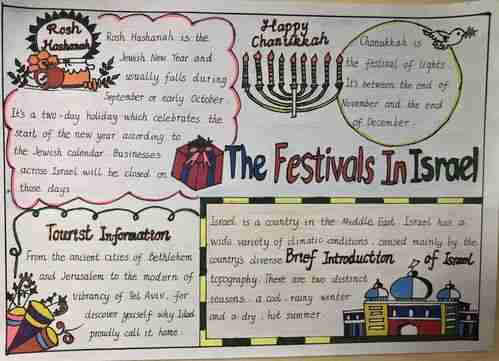 Rosh
Hashanah
Rosh Hashanah is the
Jewish New Year and
usually falls during
September or early October.
It's a two-day holiday which celebrates the
start of the new year according to
the Jewish calendar. Businesses
across Israel will be closed on
those days
Happy
Chanukkah
Chanukkah is
the festival of lights.
It's between the end of
November and the end
of December.
The Festivals In Israel
Tourist Information
From the ancient cities of Bethlehem
and Jerusalem to the modern of
vibrancy of Tel Aviv. for
discover youself why Islael
proudly call it home.
Israel is a country in the Middle East. Israel has a
wide variety of climatic conditions, caused mainly by the
country's diverse
Brief Introduction of Israel
topography. There are two distinct
seasons. a cool, rainy winter
and a dry, hot summer.